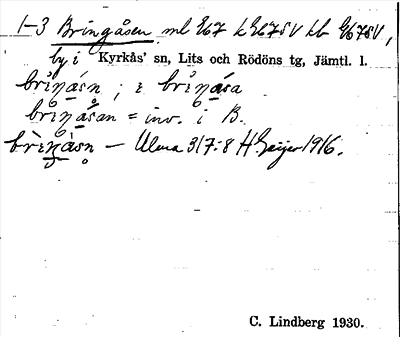 1-3 Bringåsen, ml 267 k 267SV kb 267SV,
by i Kyrkås' sn, Lits och Rödöns tg, Jämtl. l.
briŋåsn ; i briŋåsa
briŋåsan = inv. i B.
brìŋàsn — Ulma 317:8 H Geijer 1916.
C. Lindberg 1930.